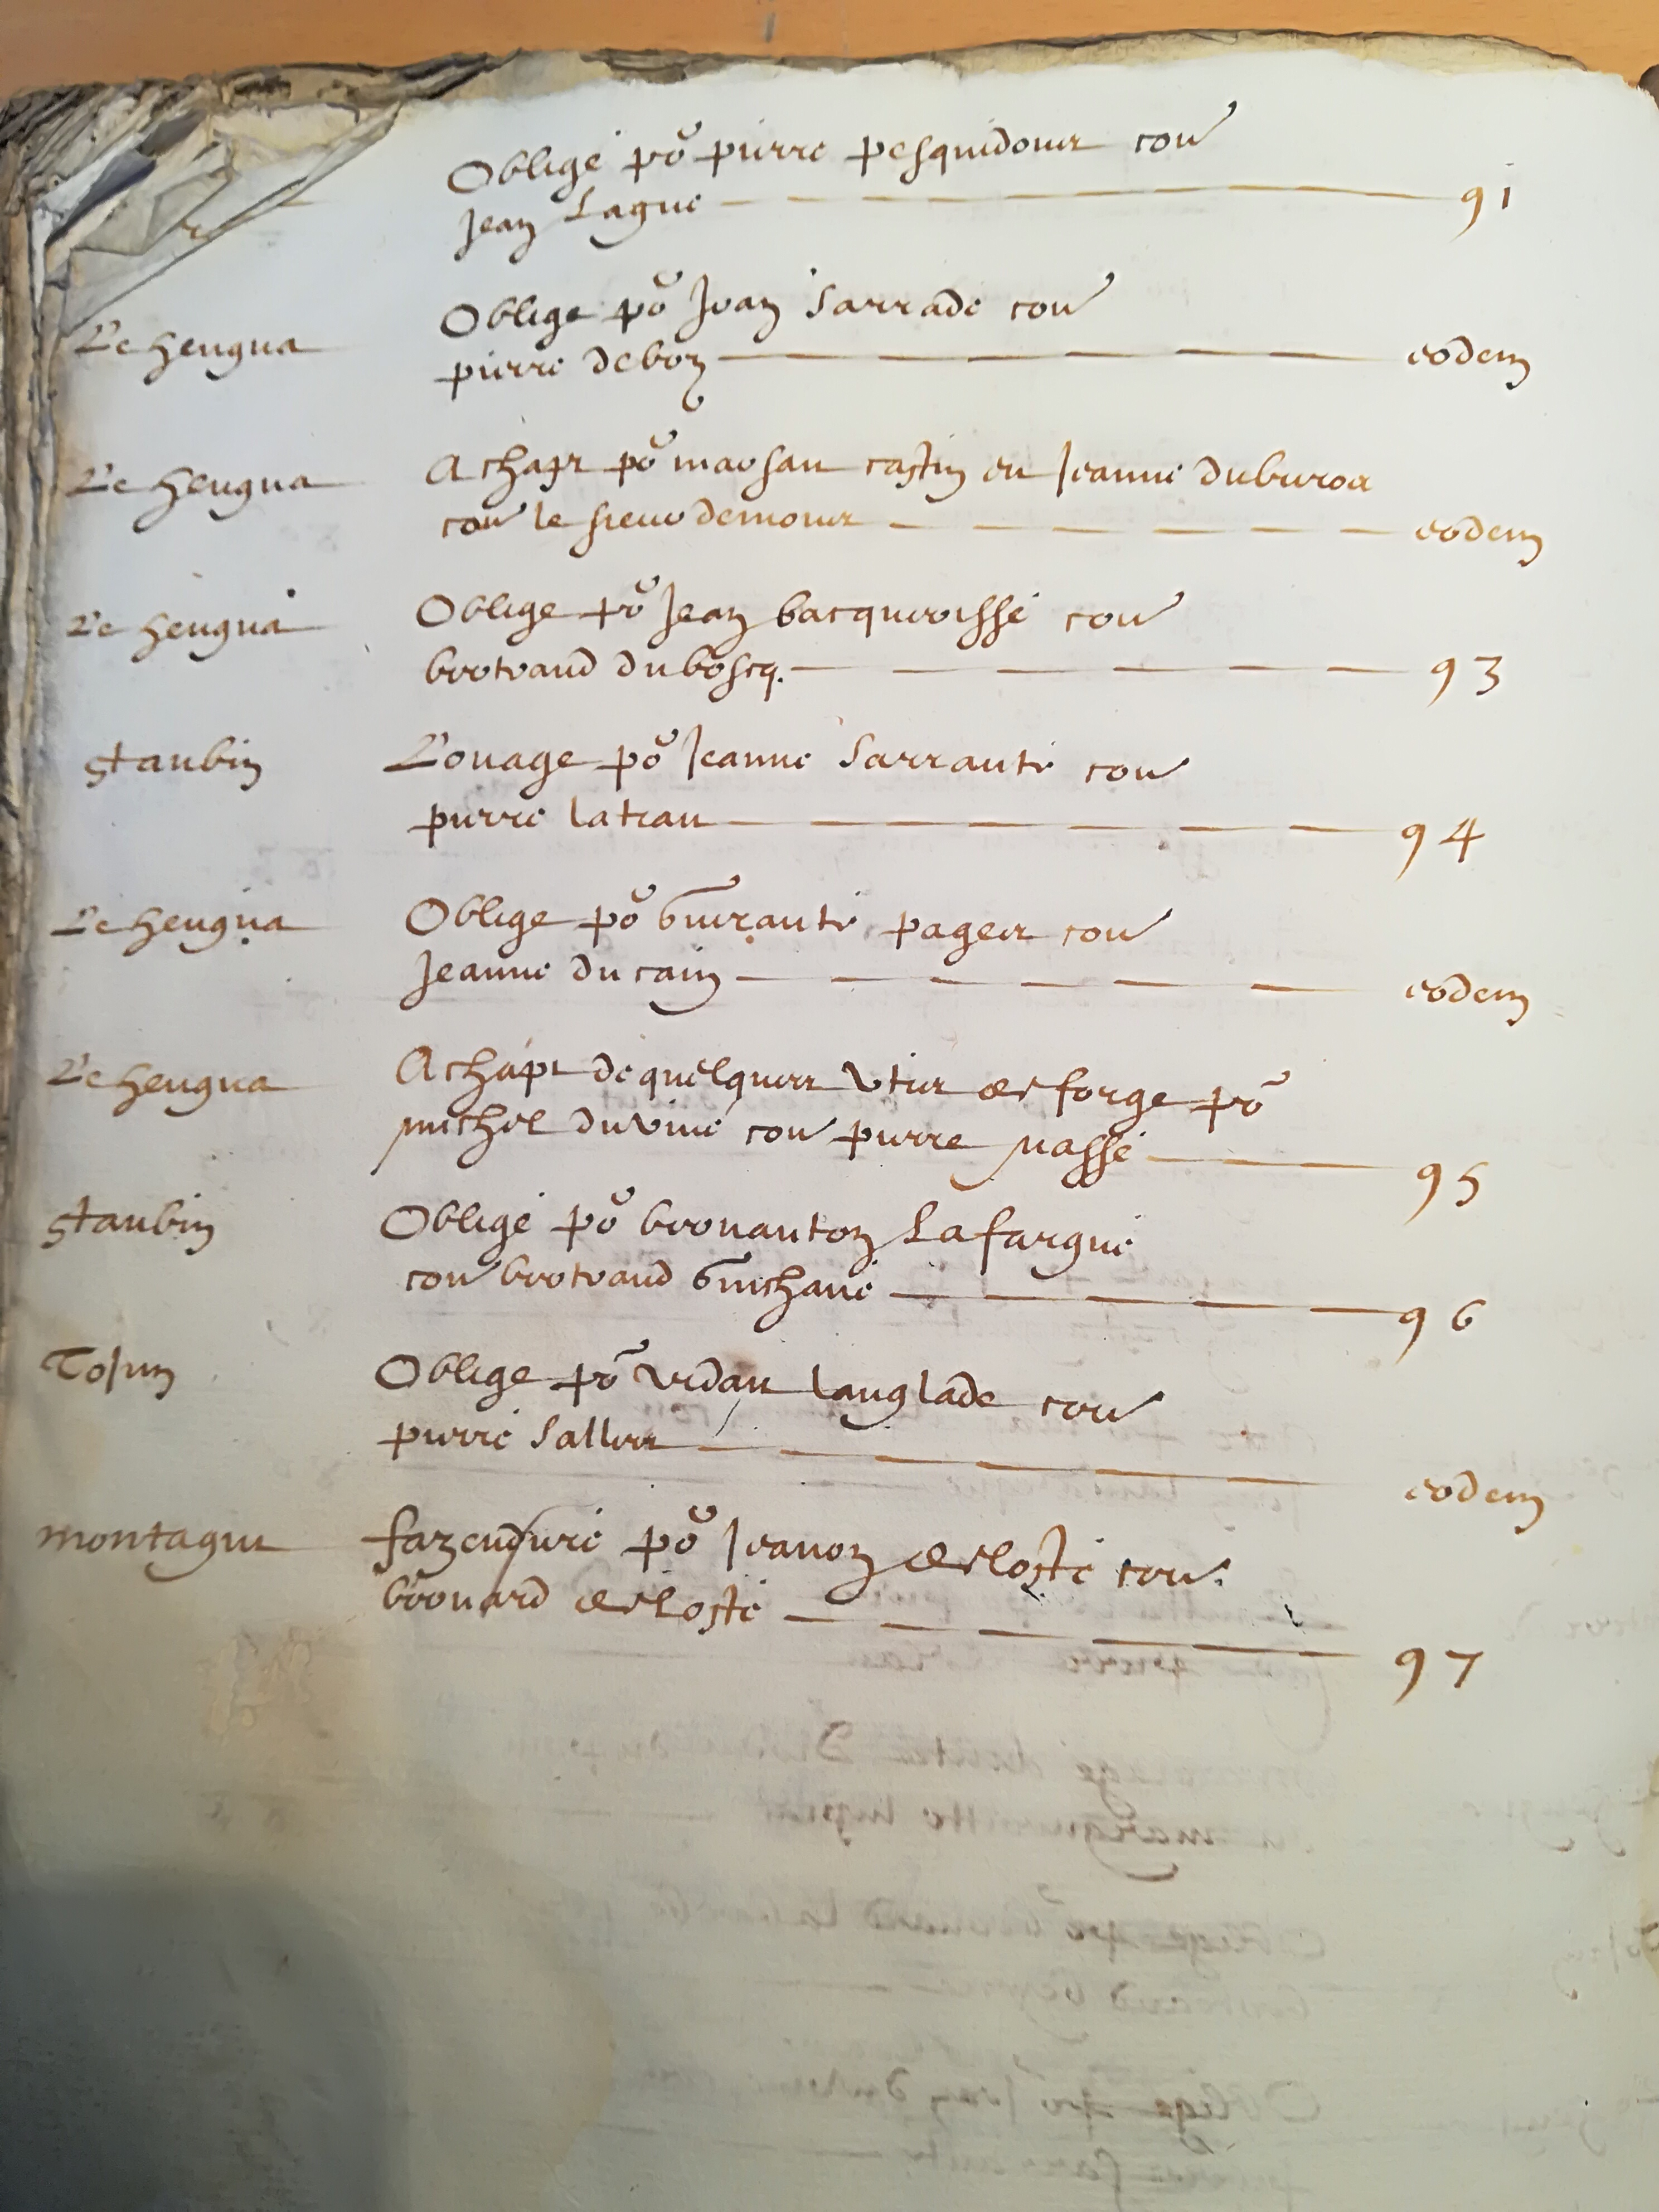 Oblige po pierre pesquidoux con
Jean Lague 91
Le heugua Oblige po Jean Sarrade con
pierre debon eodem
Le heugua Achapt po marsan castin et Jeanne duburox
con le sieur demoux eodem
Le heugua Oblige po Jean bacquerisse con
bertrand duboscq. 93
St aubin Louage po Jeanne Sarraute con
pierre latrau 94
Le heugua Oblige po Guiraute pages con
Jeanne ducain eodem
Le heugua Achapt de quelques utis de forge po
michel duvine con pierre nasse 95
St aubin Oblige po bernanton Lafargue
con bertrand Guichane 96
Tojun Oblige po vidau langlade con
pierre Salles eodem
montagut fazendure po Jeanon de loste con
bernard de Loste 97